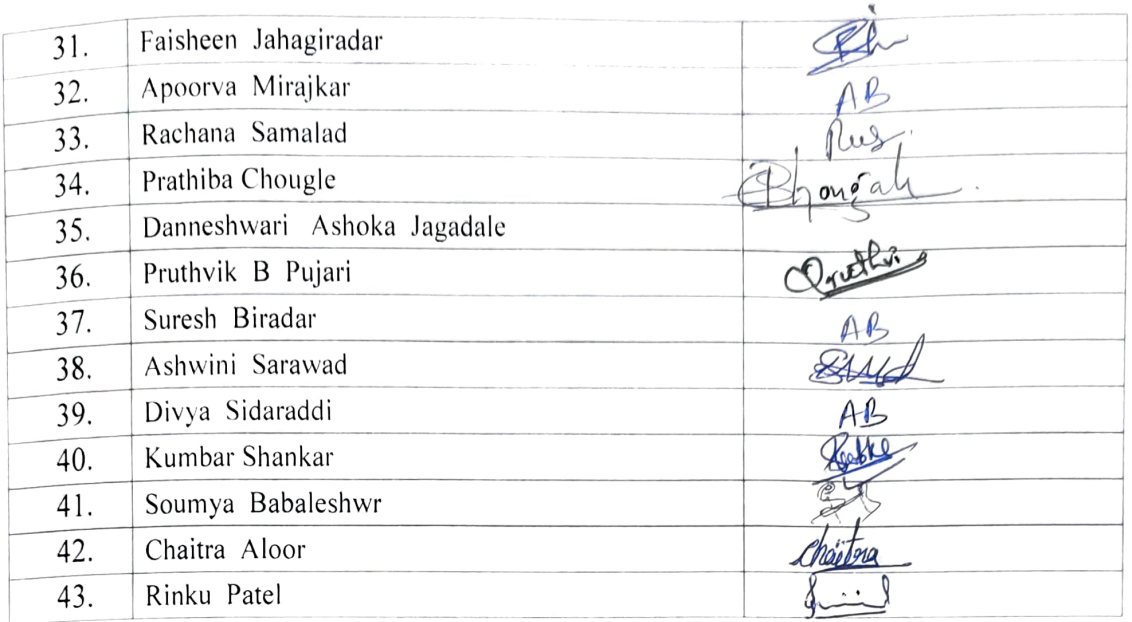 31. Faisheen Jahagiradar
32. Apoorva Mirajkar AB
33. Rachana Samalad
34. Prathiba Chougle
35. Danneshwari Ashoka Jagadale
36. Pruthvik B Pujari Pruthvi
37. Suresh Biradar AB
38. Ashwini Sarawad
39. Divya Sidaraddi AB
40. Kumbar Shankar
41. Soumya Babaleshwr
42. Chaitra Aloor Chaitra
43. Rinku Patel